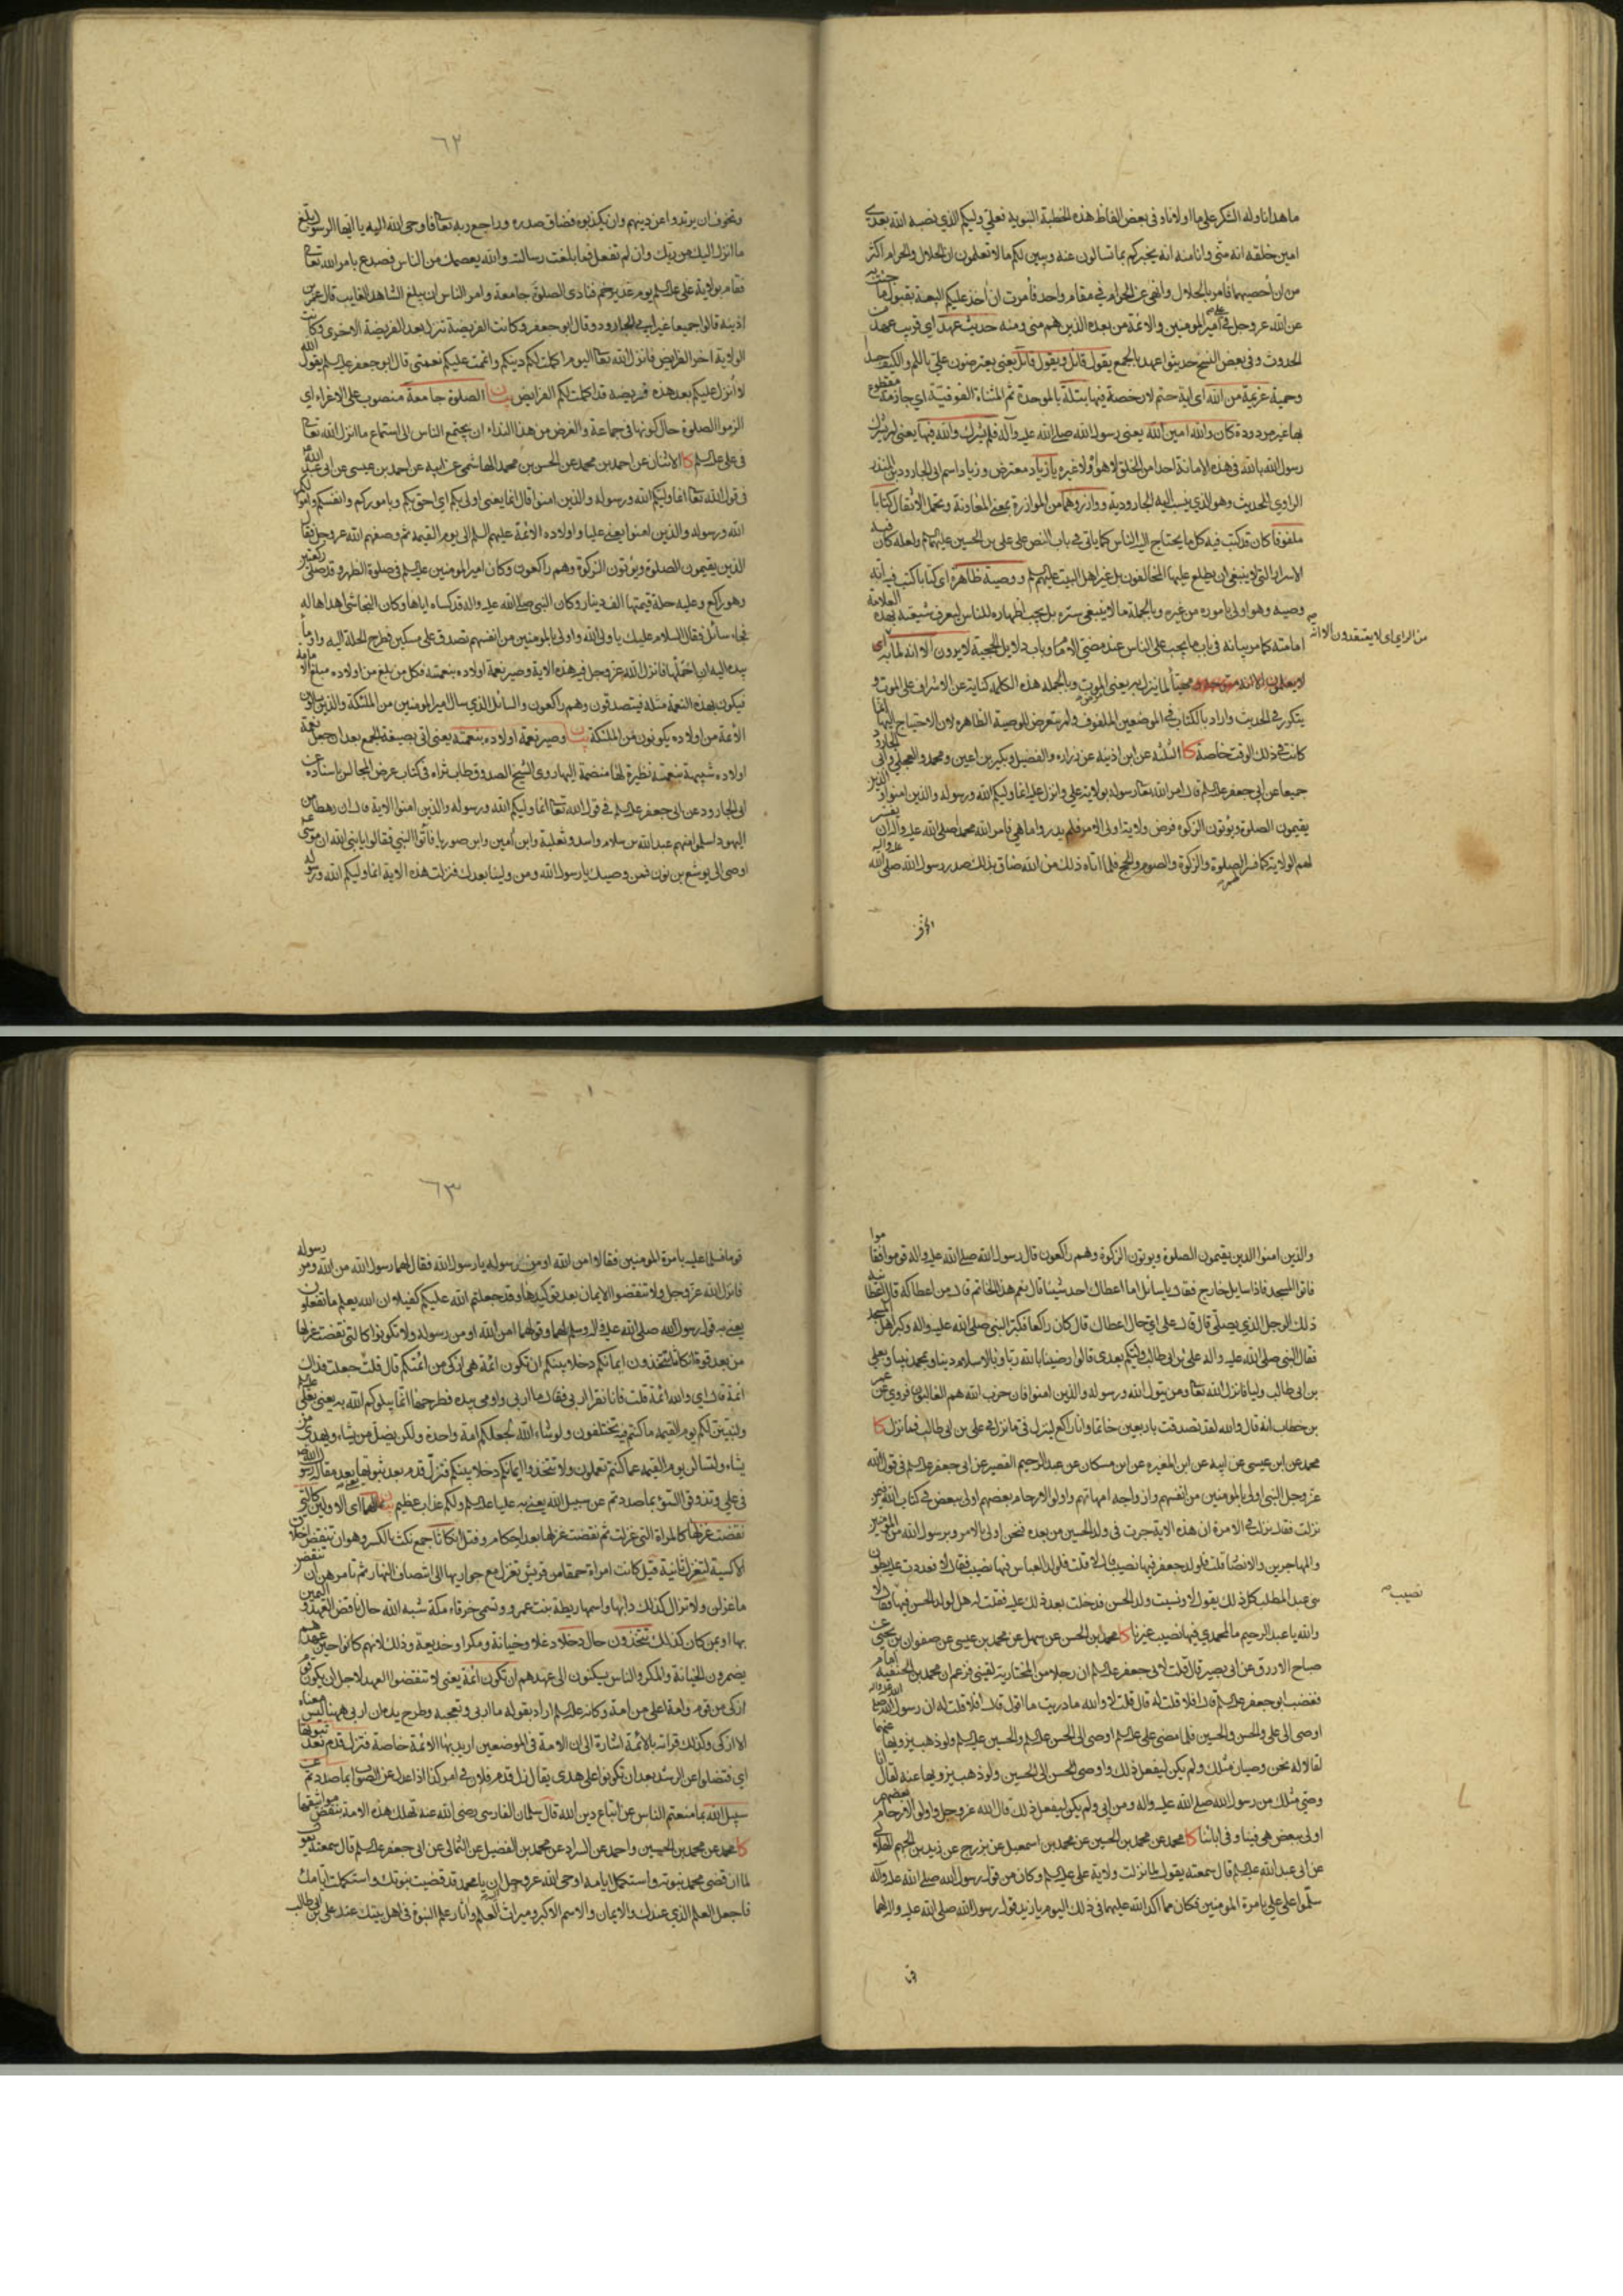 ما هدانا وله الشكر على ما اولانا وفي بعض الفاظ هذه الخطبة النبوية فعلي وليكم الذي نصبه الله بعدي
امين خلقه انه مني وانا منه انه يخبركم بما تسالون عنه ويبين لكم ما لا تعلمون ان الحلال والحرام اكثر
من ان أحصيهما فأمر بالحلال وانهى عن الحرام في مقام واحد فأمرت ان اخذ عليكم البيعة بقبول ما جئت به
عن الله عز وجل في علي امير المومنين والائمة من بعده الذين هم مني ومنه حديث عهد اي قريب عهد
الحدوث وفي بعض النسخ حديثوا عهد بالجمع يقول قائل ويقول قائل يعني يعترضون علي
وحمية عزيمة من الله اي اية حتم لا رخصة فيها بتلة بالموحدة ثم المثناة الفوقية اي جازمة مقطوع
بها غير مردودة كان والله امين الله يعني رسول الله صلى الله عليه وآله فلم يشرك والله فيها يعني لم يشرك
رسول الله بالله في هذه الامانة احدا من الخلق لا هو ولا غيره يا زياد معترض وزياد اسم ابي الجارود بن المنذر
الراوي للحديث وهو الذي ينسب اليه الجارودية ووازروهما من الموازرة بمعنى المعاونة وتحمل الاثقال كتابا
ملفوفا كان قد كتب فيه كل ما يحتاج اليه الناس كما ياتي في باب النص على علي بن الحسين عليهما السلم ولعله كان فيه
الاسرار التي لا ينبغي ان يطلع عليها المخالفون بل غير اهل البيت عليهم السلم ووصية ظاهرة اي كتابا كتب فيه انه
وصيه وهو اولى باموره من غيره وبالجملة ما لا ينبغي ستره بل يجب اظهاره للناس ليعرف شيعته بهذه العلامة
امامته كما مر بيانه في باب ما يجب على الناس عند مضي الامام وباب دلايل الحجية لا يرون الا انه لما به اي
من الراي اي لا يعتقدون الا انه
لما ينزل به يعني الموت وبالجملة هذه الكلمة كناية عن الاشراف على الموت و
يتكرر في الحديث واراد بالكتاب في الموضعين الملفوف ولم يتعرض للوصية الظاهرة لان الاحتياج اليها انما
كانت في ذلك الوقت خاصة كا الثلثة عن ابن اذينه عن زراره والفضيل وبكير بن اعين ومحمد والعجلي وابي الجارود
جميعا عن ابي جعفر عليه السلم قال امر الله تعالى رسوله بولاية علي وانزل عليه انما وليكم الله ورسوله والذين امنوا الذين
يقيمون الصلوة ويؤتون الزكوة وفرض ولاية اولي الامر فلم يدروا ما هي فامر الله محمدا صلى الله عليه وآله ان يفسر
لهم الولاية كما فسر لهم الصلوة والزكوة والصوم والحج فلما اتاه ذلك من الله ضاق بذلك صدر رسول الله صلى الله عليه وآله
وتخوف ان يرتدوا عن دينهم وان يكذبوه فضاق صدره وراجع ربه تعالى فاوحى الله اليه يا ايها الرسول بلغ
ما انزل اليك من ربك وان لم تفعل فما بلغت رسالته والله يعصمك من الناس فصدع بامر الله تعالى
فقام بولاية علي عليه السلم يوم غدير خم فنادى الصلوة جامعة وامر الناس ان يبلغ الشاهد الغايب قال عمر بن
اذينه قالوا جميعا غير ابي الجارود وقال ابو جعفر وكانت الفريضة تنزل بعد الفريضة الاخرى وكانت
الولاية اخر الفرايض فانزل الله تعالى اليوم اكملت لكم دينكم واتممت عليكم نعمتي قال ابو جعفر عليه السلم يقول الله
لا أنزل عليكم بعد هذه فريضة قد اكملت لكم الفرايض بيان الصلوة جامعة منصوب على الاغراء اي
الزموا الصلوة حال كونها في جماعة والغرض من هذا النداء ان يجتمع الناس الى استماع ما انزل الله تعالى
في علي عليه السلم كا الاثنان عن احمد بن محمد عن الحسن بن محمد الهاشمي عن ابيه عن احمد بن عيسى عن ابي عبد الله
في قول الله تعالى انما وليكم الله ورسوله والذين امنوا قال انما يعني اولى بكم اي احق بكم وباموركم وانفسكم واموالكم
الله ورسوله والذين امنوا يعني عليا واولاده الائمة عليهم السلم الى يوم القيمه ثم وصفهم الله عز وجل فقال
الذين يقيمون الصلوة ويؤتون الزكوة وهم راكعون وكان امير المومنين عليه السلم في صلوة الظهر وقد صلى ركعتين
وهو راكع وعليه حلة قيمتها الف دينار وكان النبي صلى الله عليه واله قد كساه اياها وكان النجاشي اهداها له
فجاء سائل فقال السلام عليك يا ولي الله واولى بالمومنين من انفسهم تصدق على مسكين فطرح الحلة اليه واومأ
بيده اليه ان احملها فانزل الله عز وجل فيه هذه الاية وصير نعمة اولاده بنعمته فكل من بلغ من اولاده مبلغ الامامة
فيكون بهذه النعمة مثله فيتصدقون وهم راكعون والسائل الذي سال امير المومنين من الملئكة والذين يسالون
الأئمة من اولاده يكونون من الملئكة بيان وصير نعمة اولاده بنعمته يعني اتى بصيغة الجمع بعد ان جعل نعمة
اولاده شبيهة بنعمته نظيرة لها منضمة اليها روى الشيخ الصدوق طاب ثراه في كتاب عرض المجالس باسناده عن
ابي الجارود عن ابي جعفر عليه السلم في قول الله تعالى انما وليكم الله ورسوله والذين امنوا الاية قال ان رهطا من
اليهود اسلموا منهم عبد الله بن سلام واسد وثعلبة وابن أمين وابن صوريا فأتوا النبي فقالوا يا نبي الله ان موسى
اوصى الى يوشع بن نون فمن وصيك يا رسول الله ومن ولينا بعدك فنزلت هذه الاية انما وليكم الله ورسوله
٦٢
والذين امنوا الذين يقيمون الصلوة ويوتون الزكوة وهم راكعون قال رسول الله صلى الله عليه واله قوموا فقاموا
فاتوا المسجد فاذا سايل خارج فقال يا سائل اما اعطاك احد شيئا قال نعم هذا الخاتم قال من اعطاكه قال اعطانيه
ذلك الرجل الذي يصلي قال قال على اي حال اعطاك قال كان راكعا فكبر النبي صلى الله عليه واله وكبر اهل المسجد
فقال النبي صلى الله عليه واله علي بن ابي طالب وليكم بعدي قالوا رضينا بالله ربا وبالاسلام دينا وبمحمد نبيا وبعلي
بن ابي طالب وليا فانزل الله تعالى ومن يتول الله ورسوله والذين امنوا فان حزب الله هم الغالبون فروي عن عمر
بن خطاب انه قال والله لقد تصدقت باربعين خاتما وانا راكع لينزل في ما نزل في علي بن ابي طالب فما نزل كا
محمد عن ابن عيسى عن ابيه عن ابن المغيره عن ابن مسكان عن عبد الرحيم القصير عن ابي جعفر عليه السلم في قول الله
عز وجل النبي اولى بالمومنين من انفسهم وازواجه امهاتهم واولوا الارحام بعضهم اولى ببعض في كتاب الله فيمن
نزلت فقال نزلت في الامرة ان هذه الاية جرت في ولد الحسين من بعده فنحن اولى بالامر وبرسول الله من المومنين
والمهاجرين والانصار قلت فلولد جعفر فيها نصيب قال لا قلت فلولد العباس فيها نصيب فقال لا فعددت عليه بطون
بني عبد المطلب كل ذلك يقول لا ونسيت ولد الحسن فدخلت بعد ذلك عليه فقلت له هل لولد الحسن فيها فقال لا
نصيب
والله يا عبد الرحيم ما لمحمدي فيها نصيب غيرنا كا محمد بن الحسن عن سهل عن محمد بن عيسى عن صفوان بن يحيى عن
صباح الازرق عن ابي بصير قال قلت لابي جعفر عليه السلم ان رجلا من المختارية لقيني فزعم ان محمد بن الحنفية امام
فغضب ابو جعفر عليه السلم قال افلا قلت له قال قلت لا والله ما دريت ما اقول قال افلا قلت له ان رسول الله صلى الله عليه واله
اوصى الى علي والحسن والحسين فلما مضى علي عليه السلم اوصى الى الحسن عليه السلم والحسين عليه السلم ولو ذهب يزويها عنهما
لقالا له نحن وصيان مثلك ولم يكن ليفعل ذلك واوصى الحسن الى الحسين ولو ذهب يزويها عنه لقال انا
وصي مثلك من رسول الله صلى الله عليه واله ومن ابي ولم يكن ليفعل ذلك قال الله عز وجل واولوا الارحام بعضهم
اولى ببعض هي فينا وفي ابنائنا كا محمد عن محمد بن الحسين عن محمد بن اسمعيل عن بزرج عن زيد بن الجهم الهلالي
عن ابي عبد الله عليه السلم قال سمعته يقول لما نزلت ولاية علي عليه السلم وكان من قول رسول الله صلى الله عليه وآله
سلموا على علي بامرة المومنين فكان مما اكد الله عليهما في ذلك اليوم يا زيد قول رسول الله صلى الله عليه واله لهما
قوما فسلما عليه بامرة المومنين فقالا امن الله او من رسوله يا رسول الله فقال لهما رسول الله من الله ومن رسوله
فانزل الله عز وجل ولا تنقضوا الايمان بعد توكيدها وقد جعلتم الله عليكم كفيلا ان الله يعلم ما تفعلون
يعني به قول رسول الله صلى الله عليه واله وسلم لهما وقولهما امن الله او من رسوله ولا تكونوا كالتي نقضت غزلها
من بعد قوة انكاثا تتخذون ايمانكم دخلا بينكم ان تكون ائمة هي ازكى من ائمتكم قال قلت جعلت فداك
ائمة قال اي والله ائمة قلت فانا نقرا اربى فقال ما اربى واومى بيده فطرحها انما يبلوكم الله به يعني بعلي عليه السلم
وليبينن لكم يوم القيمه ما كنتم فيه تختلفون ولو شاء الله لجعلكم امة واحدة ولكن يضل من يشاء ويهدي من
يشاء ولتسالن يوم القيمه عما كنتم تعملون ولا تتخذوا ايمانكم دخلا بينكم فتزل قدم بعد ثبوتها يعني بعد مقالة رسول الله
في علي وتذوقوا السوء بما صددتم عن سبيل الله يعني به عليا عليه السلم ولكم عذاب عظيم بيان لهما اي الاولين كالتي
نقضت غزلها كالمراة التي غزلت ثم نقضت غزلها بعد احكام وفتل انكاثا جمع نكث بالكسر وهو ان تنقض اخلاق
الاكسية لتغزل ثانية قيل كانت امراة حمقا من قريش تغزل مع جواريها الى انتصاف النهار ثم تامرهن ان تنقضن
ما غزلن ولا تزال كذلك دابها واسمها ريطة بنت عمرو وتسمى خرقاء مكة شبه الله حال ناقض العهد واليمين
بها او بمن كان كذلك تتخذون حال دخلا دغلا وخيانة ومكرا وخديعة وذلك لانهم كانوا حين عهدهم
يضمرون الخيانة والمكر والناس يسكنون الى عهدهم ان تكون ائمة يعني لا تنقضوا العهد لاجل ان يكون قوم
ازكى من قوم وامة اعلى من امة وكانه عليه السلم اراد بقوله ما اربى وتعجبه وطرح يده ان اربى ههنا ليس معناه
الا ازكى وكذلك قرائته بالائمة اشارة الى ان الامة في الموضعين اريد بها الائمة خاصة فتزل قدم بعد ثبوتها
اي فتضلوا عن الرشد بعد ان تكونوا على هدى يقال زل قدم فلان في امر كذا اذا عدل عن الصواب بما صددتم عن
سبيل الله بما منعتم الناس عن اتباع دين الله قال سلمان الفارسي رضي الله عنه تهلك هذه الامة بنقض مواثيقها
كا محمد عن محمد بن الحسين واحمد عن السراد عن محمد بن الفضيل عن الثمالي عن ابي جعفر عليه السلم قال سمعته يقول
لما ان قضى محمد نبوته واستكمل ايامه اوحى الله عز وجل اليه ان يا محمد قد قضيت نبوتك واستكملت ايامك
فاجعل العلم الذي عندك والايمان والاسم الاكبر وميراث العلم واثار علم النبوة في اهل بيتك عند علي بن ابي طالب
٦٣